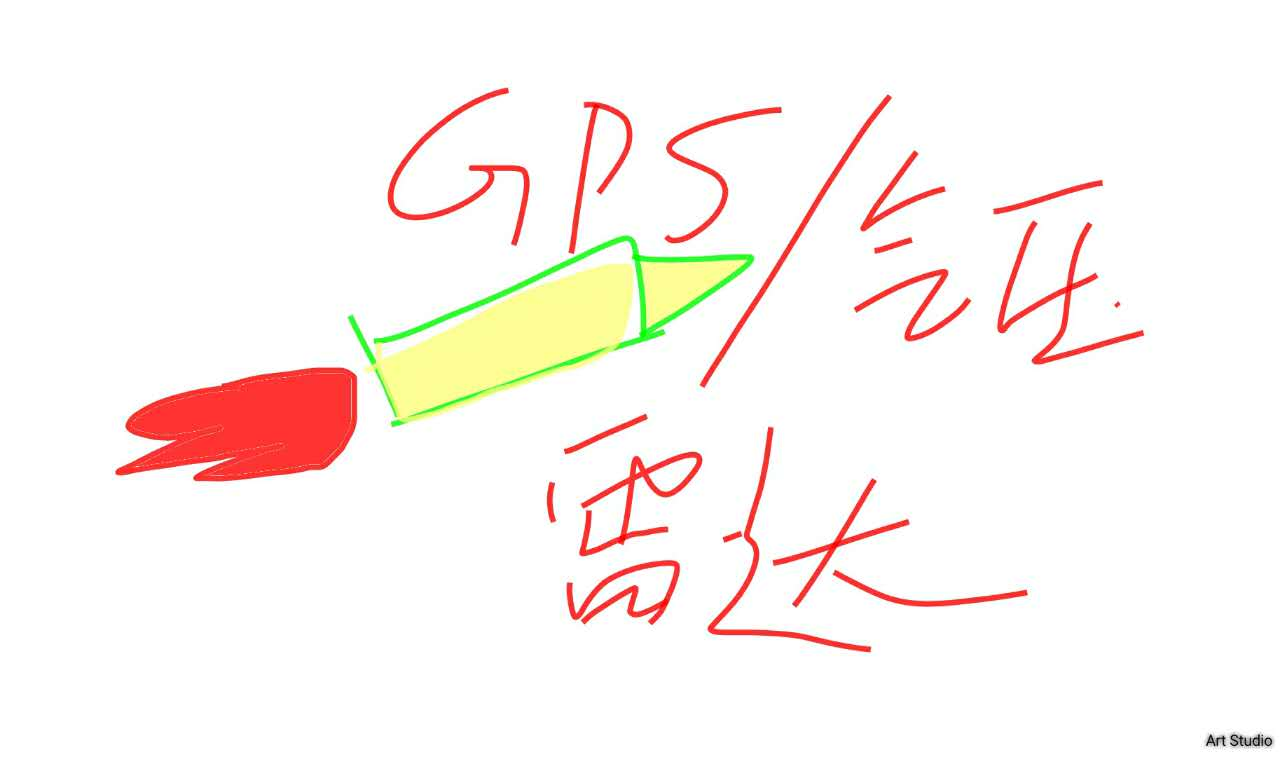 GPS/气压
雷达
Art Studio